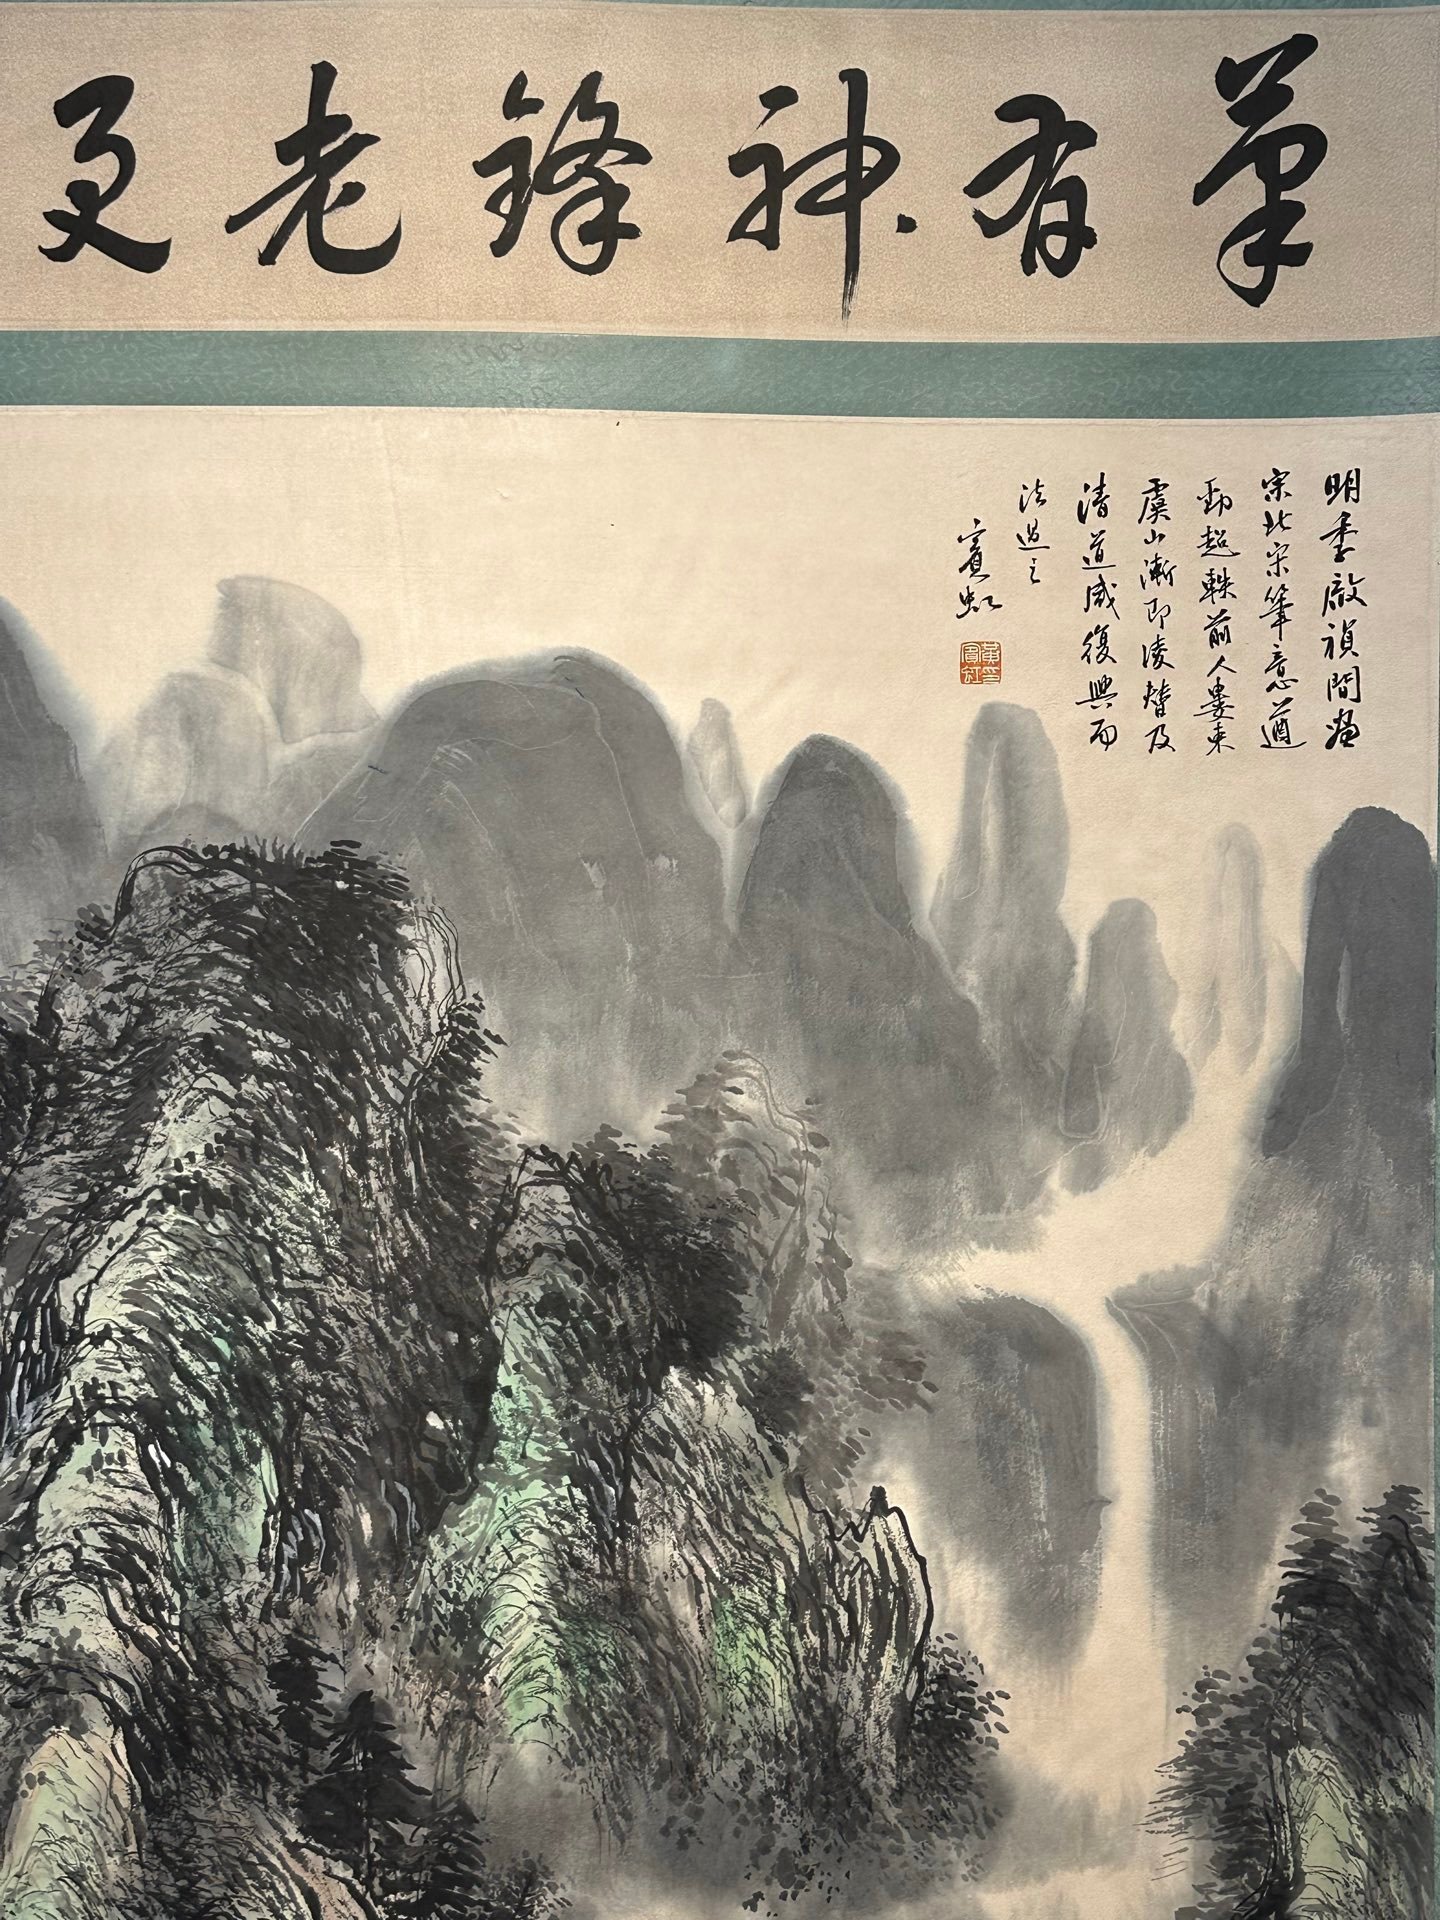 筆有神鋒老更
明季啟禎間畫
宗北宋筆意遒
勁超軼前人婁東
虞山漸即凌替及
清道咸復興而
法過之
賓虹
黃賓虹印